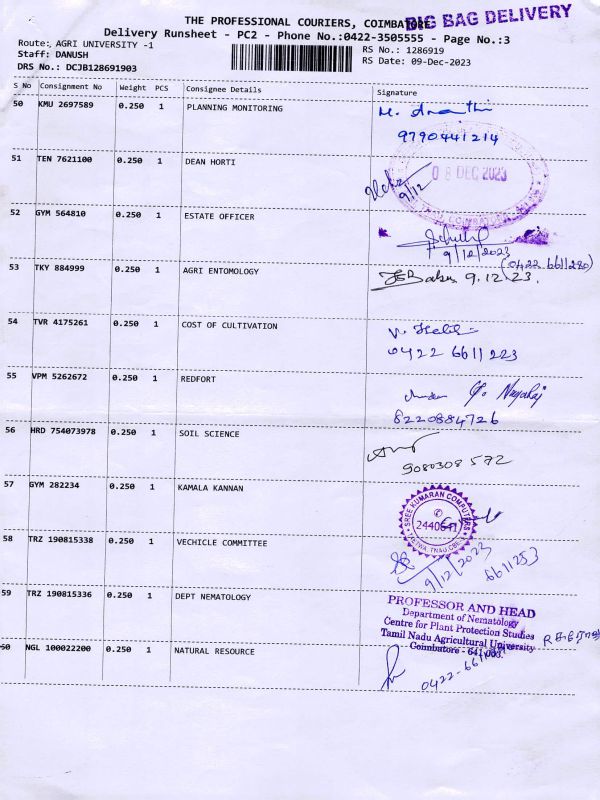 THE PROFESSIONAL COURIERS, COIMBATORE
BIG BAG DELIVERY
Delivery Runsheet - PC2 - Phone No.:0422-3505555 - Page No.:3
Route:, AGRI UNIVERSITY -1
RS No.: 1286919
Staff: DANUSH
RS Date: 09-Dec-2023
DRS No.: DCJB128691903
S No Consignment No Weight PCS Consignee Details Signature
50 KMU 2697589 0.250 1 PLANNING MONITORING
9790441214
51 TEN 7621100 0.250 1 DEAN HORTI
08 DEC 2023
9/12
52 GYM 564810 0.250 1 ESTATE OFFICER
9/12/2023
(0422 6611280)
53 TKY 884999 0.250 1 AGRI ENTOMOLOGY
9.12.23.
54 TVR 4175261 0.250 1 COST OF CULTIVATION
0422 6611 223
55 VPM 5262672 0.250 1 REDFORT
8220884726
56 HRD 754073978 0.250 1 SOIL SCIENCE
9080308 572
57 GYM 282234 0.250 1 KAMALA KANNAN
SREE KUMARAN COMPUTERS
2440641
58 TRZ 190815338 0.250 1 VECHICLE COMMITTEE
9/12/2023
6611253
59 TRZ 190815336 0.250 1 DEPT NEMATOLOGY
PROFESSOR AND HEAD
Department of Nematology
Centre for Plant Protection Studies
Tamil Nadu Agricultural University
Coimbatore - 641 003.
60 NGL 100022200 0.250 1 NATURAL RESOURCE